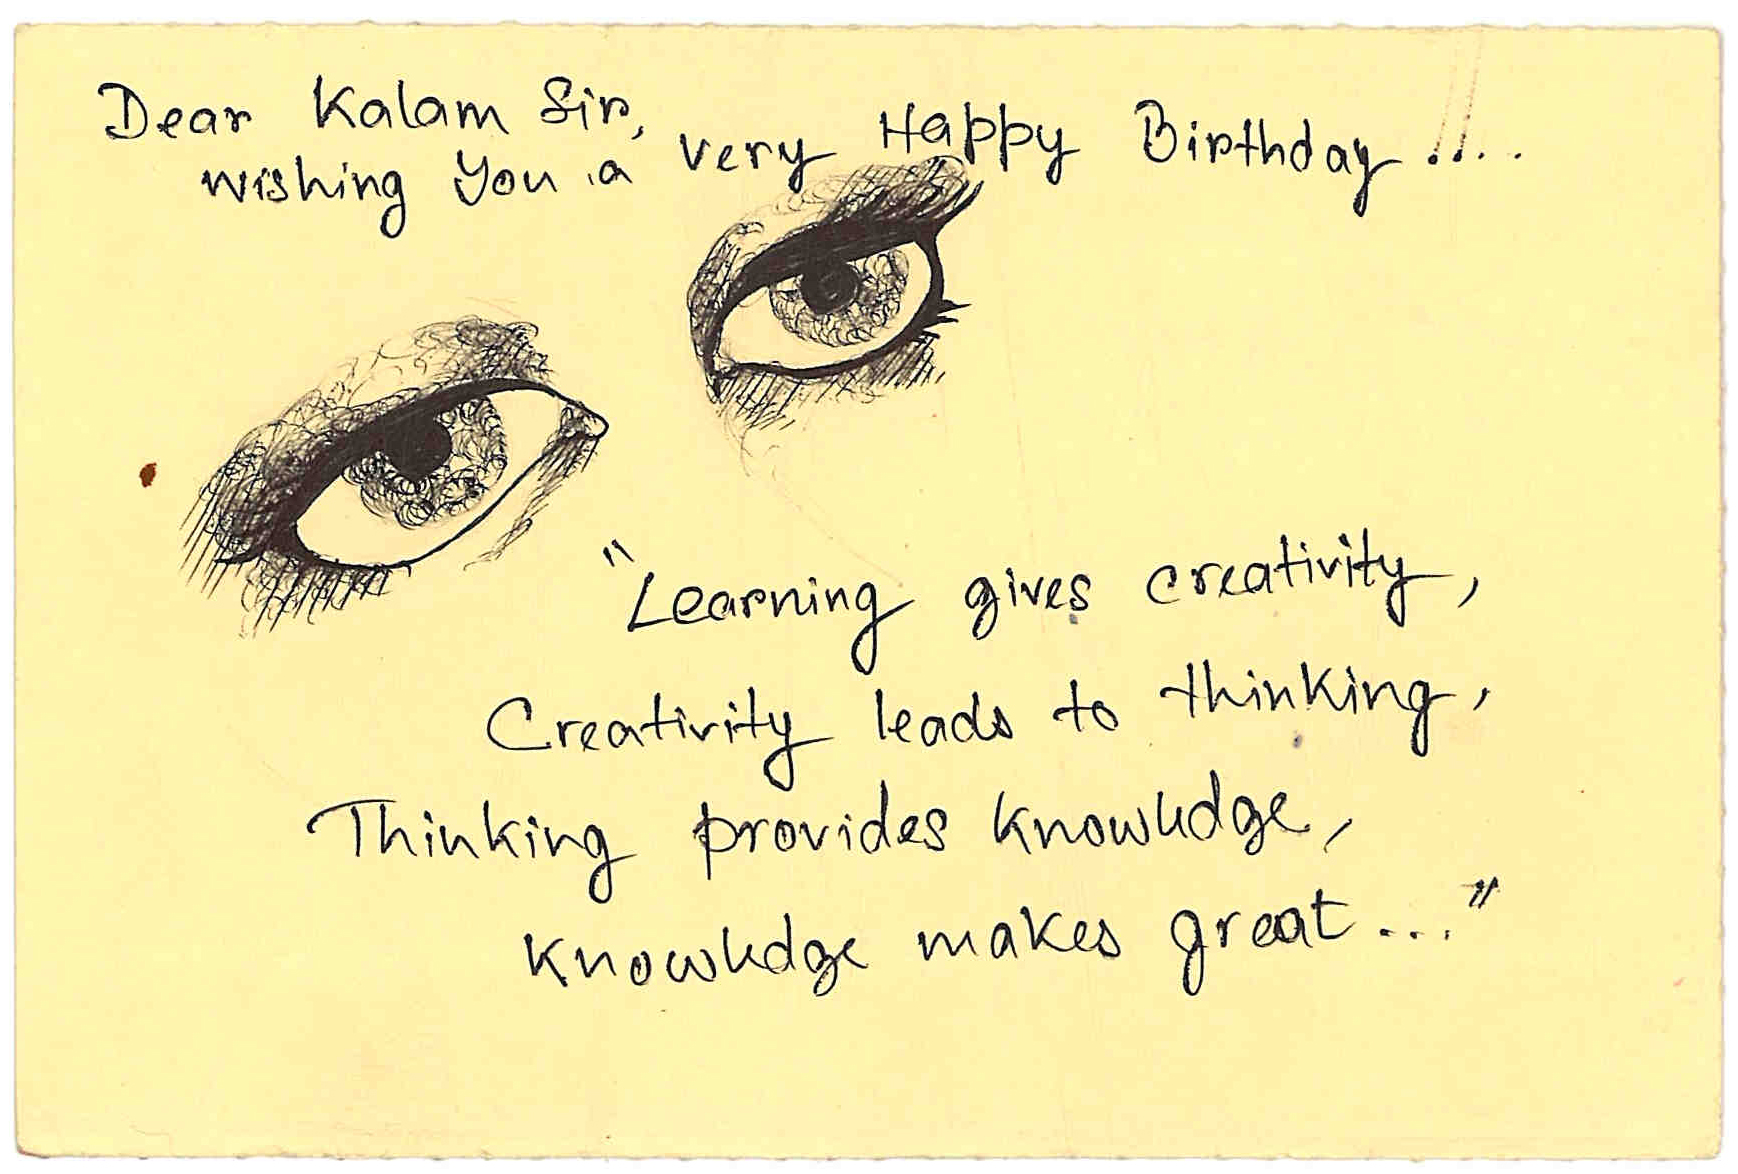 Dear Kalam Sir,
wishing you a very Happy Birthday !!...
"Learning gives creativity,
Creativity leads to thinking,
Thinking provides knowledge,
knowledge makes great..."